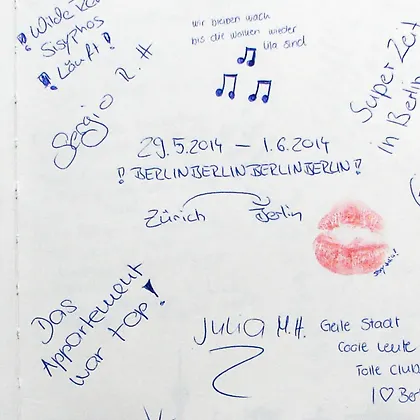 ! Wilde
Sisyphos
Läuft !
R. H
Sergio
wir bleiben wach
bis die wolken wieder
lila sind
Super Zeit
in Berlin
29.5.2014 – 1.6.2014
! BERLINBERLINBERLINBERLIN !
Zürich Berlin
Das
Appartement
war top!
Julia M.H.
Geile Stadt
Coole Leute
Tolle Club
I ♡ Ber